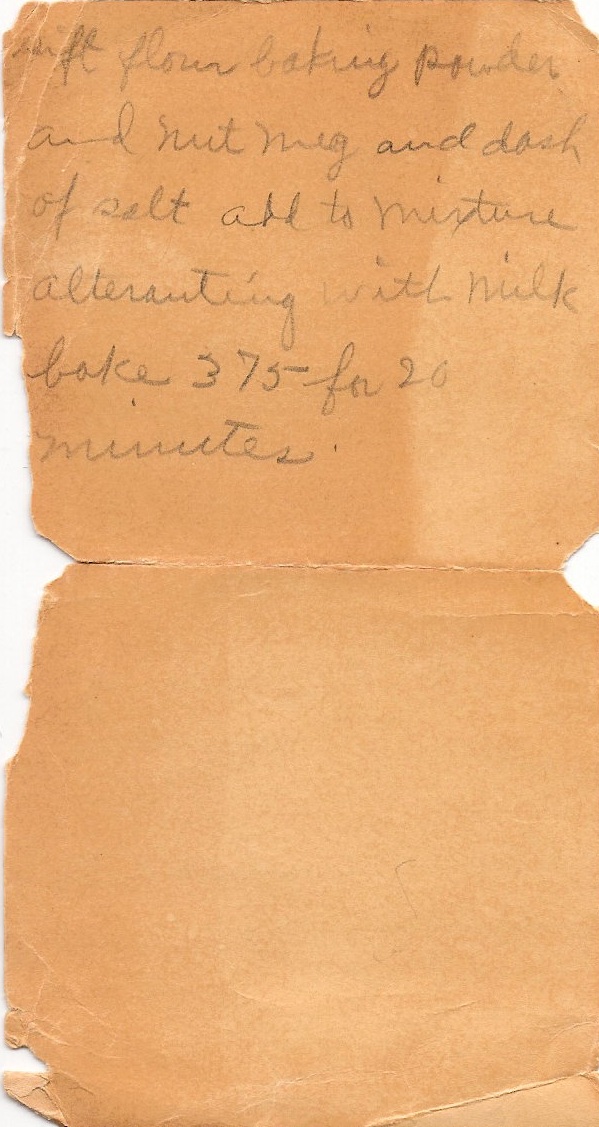 sift flour baking powder
and nut meg and dash
of salt add to mixture
alteranting with milk
bake 375 for 20
minutes.